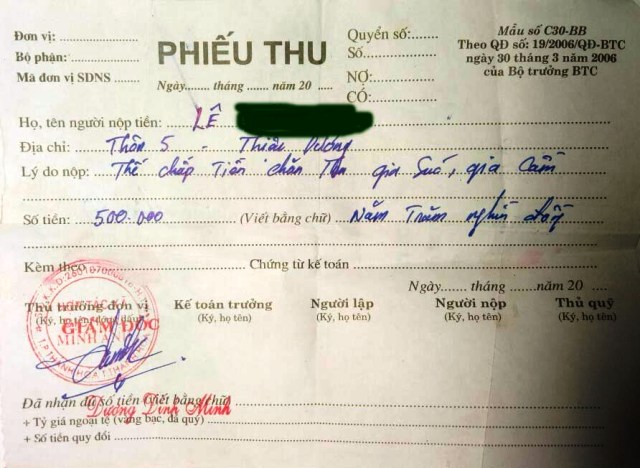 Đơn vị:
Bộ phận:
Mã đơn vị SDNS
PHIẾU THU
Ngày........ tháng ........ năm 20 ......
Quyển số:
Số
NỢ:
CÓ:
Mẫu số C30-BB
Theo QĐ số: 19/2006/QĐ-BTC
ngày 30 tháng 3 năm 2006
của Bộ trưởng BTC
Họ, tên người nộp tiền: LÊ
Địa chỉ: Thôn 5 - Thiệu Dương
Lý do nộp: Thế chấp Tiền chăn gia Suc, gia Cầm
Số tiền: 500.000 (Viết bằng chữ) Năm Trăm nghìn đồng
Kèm theo Chứng từ kế toán
Ngày........ tháng ........ năm 20 ......
Thủ trưởng đơn vị Kế toán trưởng Người lập Người nộp Thủ quỹ
(Ký, họ tên, đóng dấu) (Ký, họ tên) (Ký, họ tên) (Ký, họ tên) (Ký, họ tên)
GIÁM ĐỐC
MINH ANH
T.P THANH HÓA
Đã nhận đủ số tiền (Viết bằng chữ)
Dương Đình Minh
+ Tỷ giá ngoại tệ (vàng bạc, đá quý)
+ Số tiền quy đổi